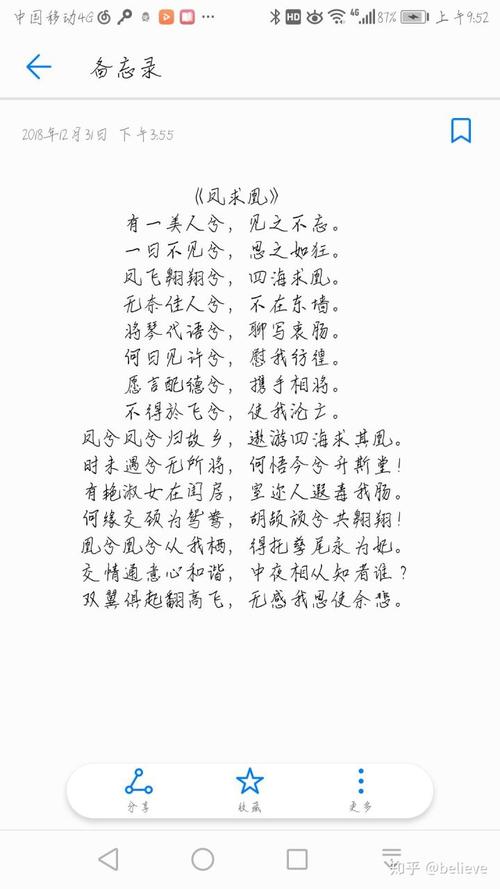 中国移动4G 4G 87% 上午9:52
备忘录
2018年12月31日 下午3:55
《凤求凰》
有一美人兮，见之不忘。
一日不见兮，思之如狂。
凤飞翱翔兮，四海求凰。
无奈佳人兮，不在东墙。
将琴代语兮，聊写衷肠。
何日见许兮，慰我彷徨。
愿言配德兮，携手相将。
不得於飞兮，使我沦亡。
凤兮凤兮归故乡，遨游四海求其凰。
时未遇兮无所将，何悟今兮升斯堂！
有艳淑女在闺房，室迩人遐毒我肠。
何缘交颈为鸳鸯，胡颉颃兮共翱翔！
凰兮凰兮从我栖，得托孳尾永为妃。
交情通意心和谐，中夜相从知者谁？
双翼俱起翻高飞，无感我思使余悲。
分享 收藏 更多
知乎 @believe